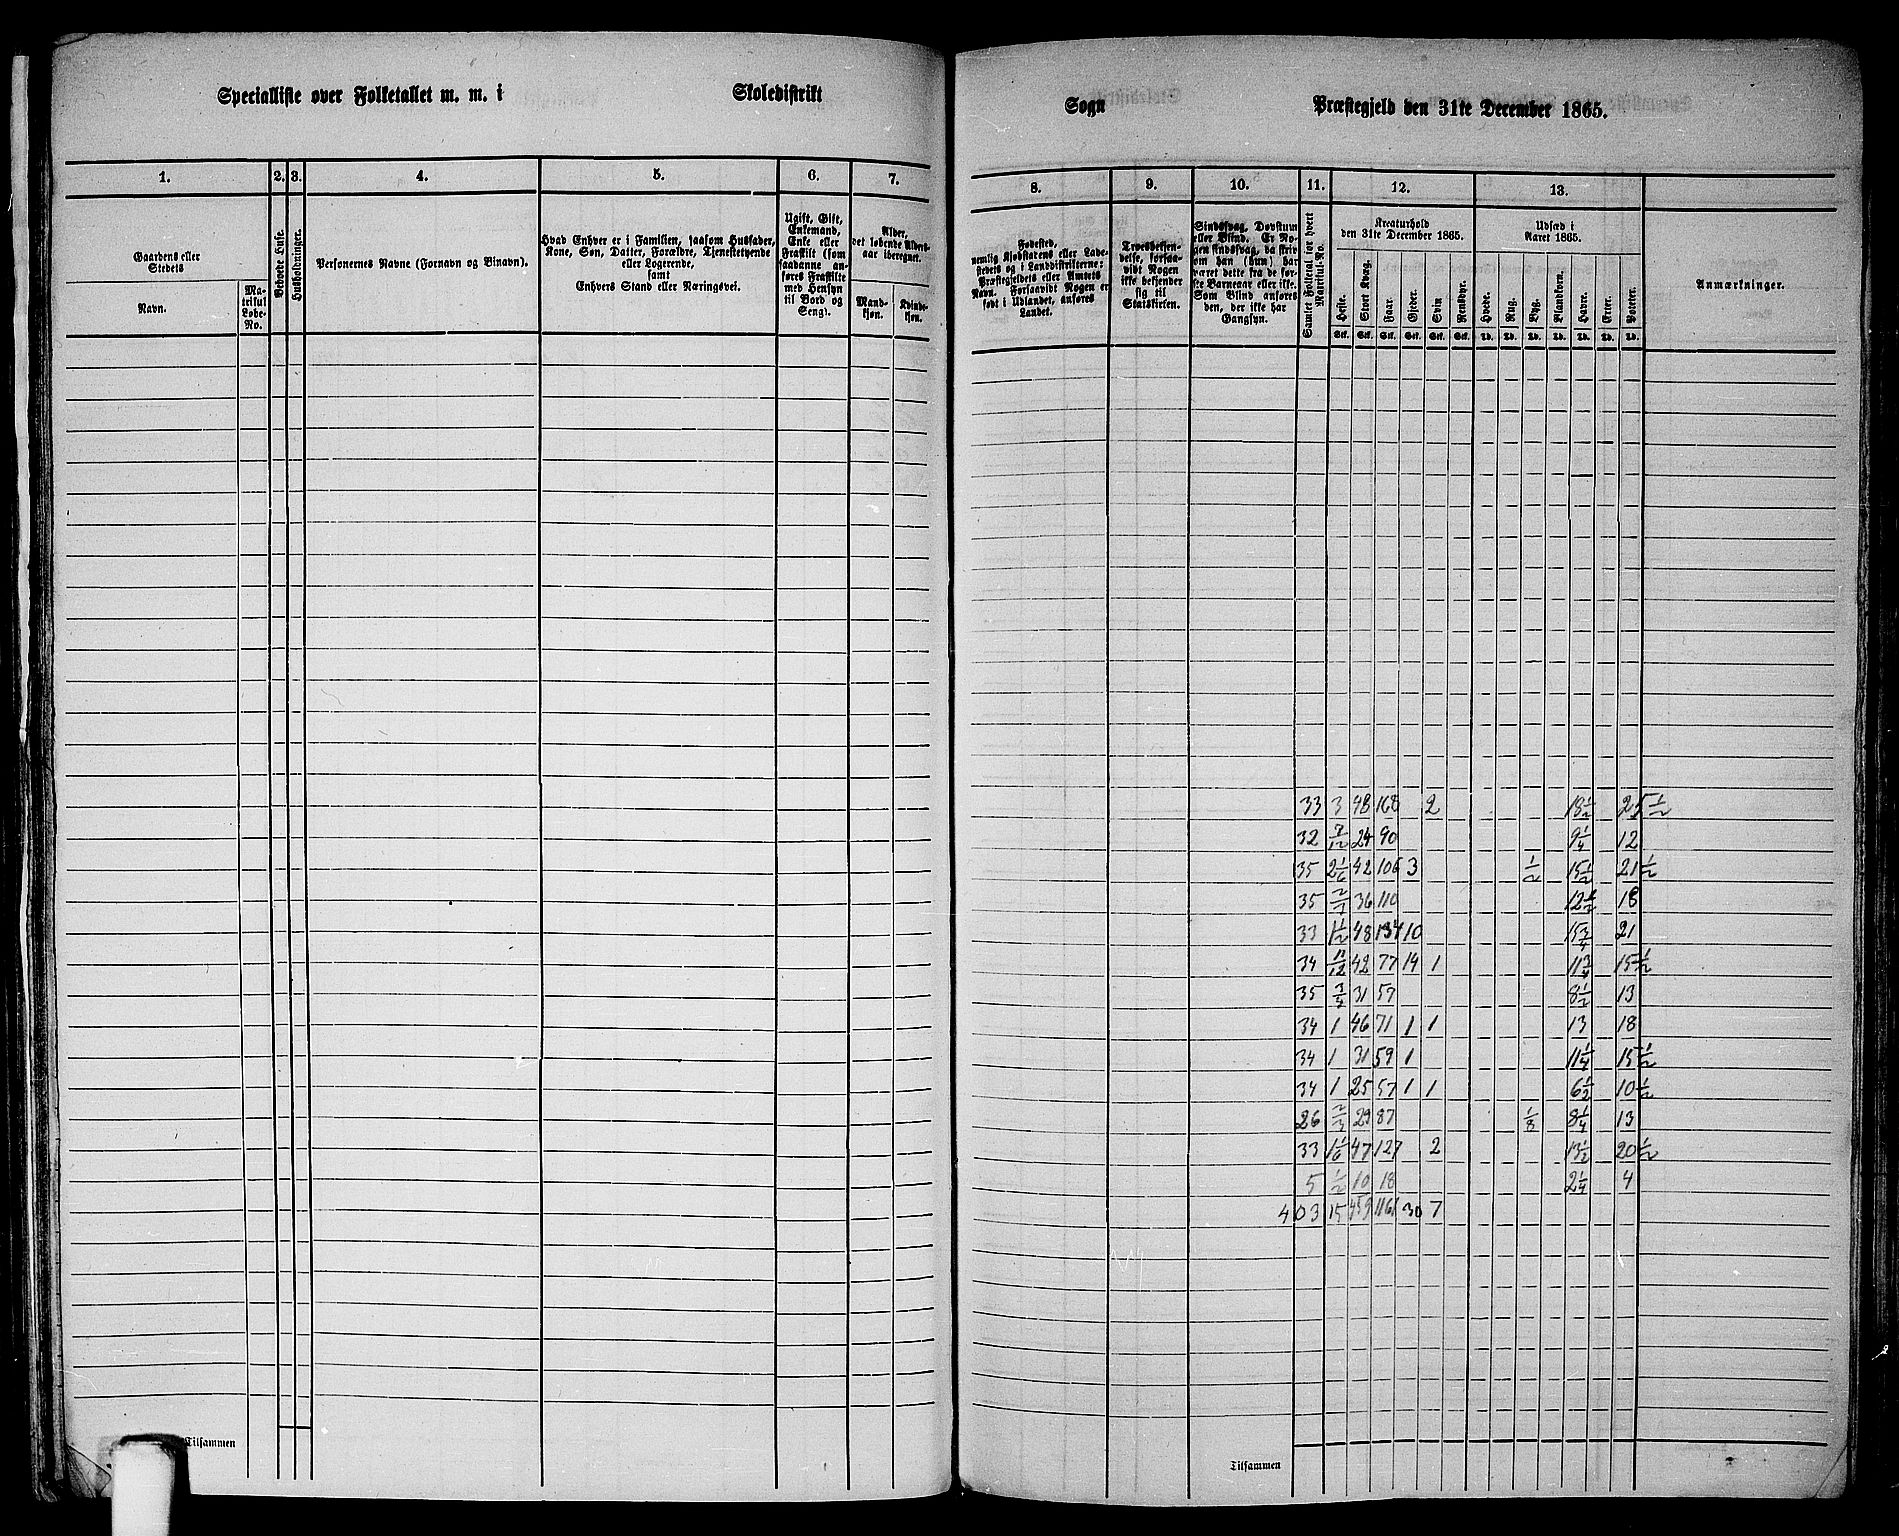 Specialliste over Folketallet m. m. i Skoledistrikt
1. 2. 3. 4. 5. 6. 7.
Gaardens eller Stedets
Navn.
Matrikul Løbe-No.
Beboede Huse.
Husholdninger.
Personernes Navne (Fornavn og Binavn).
Hvad Enhver er i Familien, saasom Husfader,
Kone, Søn, Datter, Forældre, Tjenestetyende
eller Logerende,
samt
Enhvers Stand eller Næringsvei.
Ugift, Gift,
Enkemand,
Enke eller
Fraskilt (som
saadanne an-
føres Fraskilte
med Hensyn
til Bord og
Seng).
Alder,
det løbende Alders-
aar iberegnet.
Mand-
kjøn.
Kvinde-
kjøn.
Tilsammen
Sogn Præstegjeld den 31te December 1865.
8. 9. 10. 11. 12. 13.
Fødested,
nemlig Kjøbstadens eller Lade-
stedets og i Landdistrikterne:
Præstegjeldets eller Amtets
Navn. Forsaavidt Nogen er
født i Udlandet, anføres
Landet.
Troesbekjen-
delse, forsaa-
vidt Nogen
ikke bekjender
sig til
Statskirken.
Sindssvag, Døvstum
eller Blind. Er No-
gen sindssvag, da skriv
om han (hun) har
været dette fra de før-
ste Barneaar eller ikke.
Som Blind anføres
den, der ikke har
Gangsyn.
Samlet Folketal for hvert
Matrikul No.
Kreaturhold
den 31te December 1865.
Heste. Stort Kvæg. Faar. Gjeder. Svin Rensdyr.
Stk. Stk. Stk. Stk. Stk. Stk.
Udsæd i
Aaret 1865.
Hvede. Rug. Byg. Blandkorn. Havre. Erter. Poteter.
Td. Td. Td. Td. Td. Td. Td.
Anmærkninger.
33 3 48 168 2 18 1/2 25 1/2
32 7/12 24 90 9 1/4 12
35 2 1/6 42 106 3 1/2 15 1/2 21 1/2
35 36 110 18
33 1 1/2 48 134 10 15 3/4 21
34 11/12 42 77 14 1 11 3/4 15 1/2
35 3/4 31 57 8 1/2 13
34 1 46 71 1 1 13 18
34 1 31 59 1 11 1/4 15 1/2
34 1 25 57 1 1 6 1/2 10 1/2
26 2/3 29 87 1/8 8 1/4 13
33 1 1/6 47 127 2 13 1/2 20 1/2
5 1/2 10 18 2 1/4 4
403 15 459 1161 30 7
Tilsammen